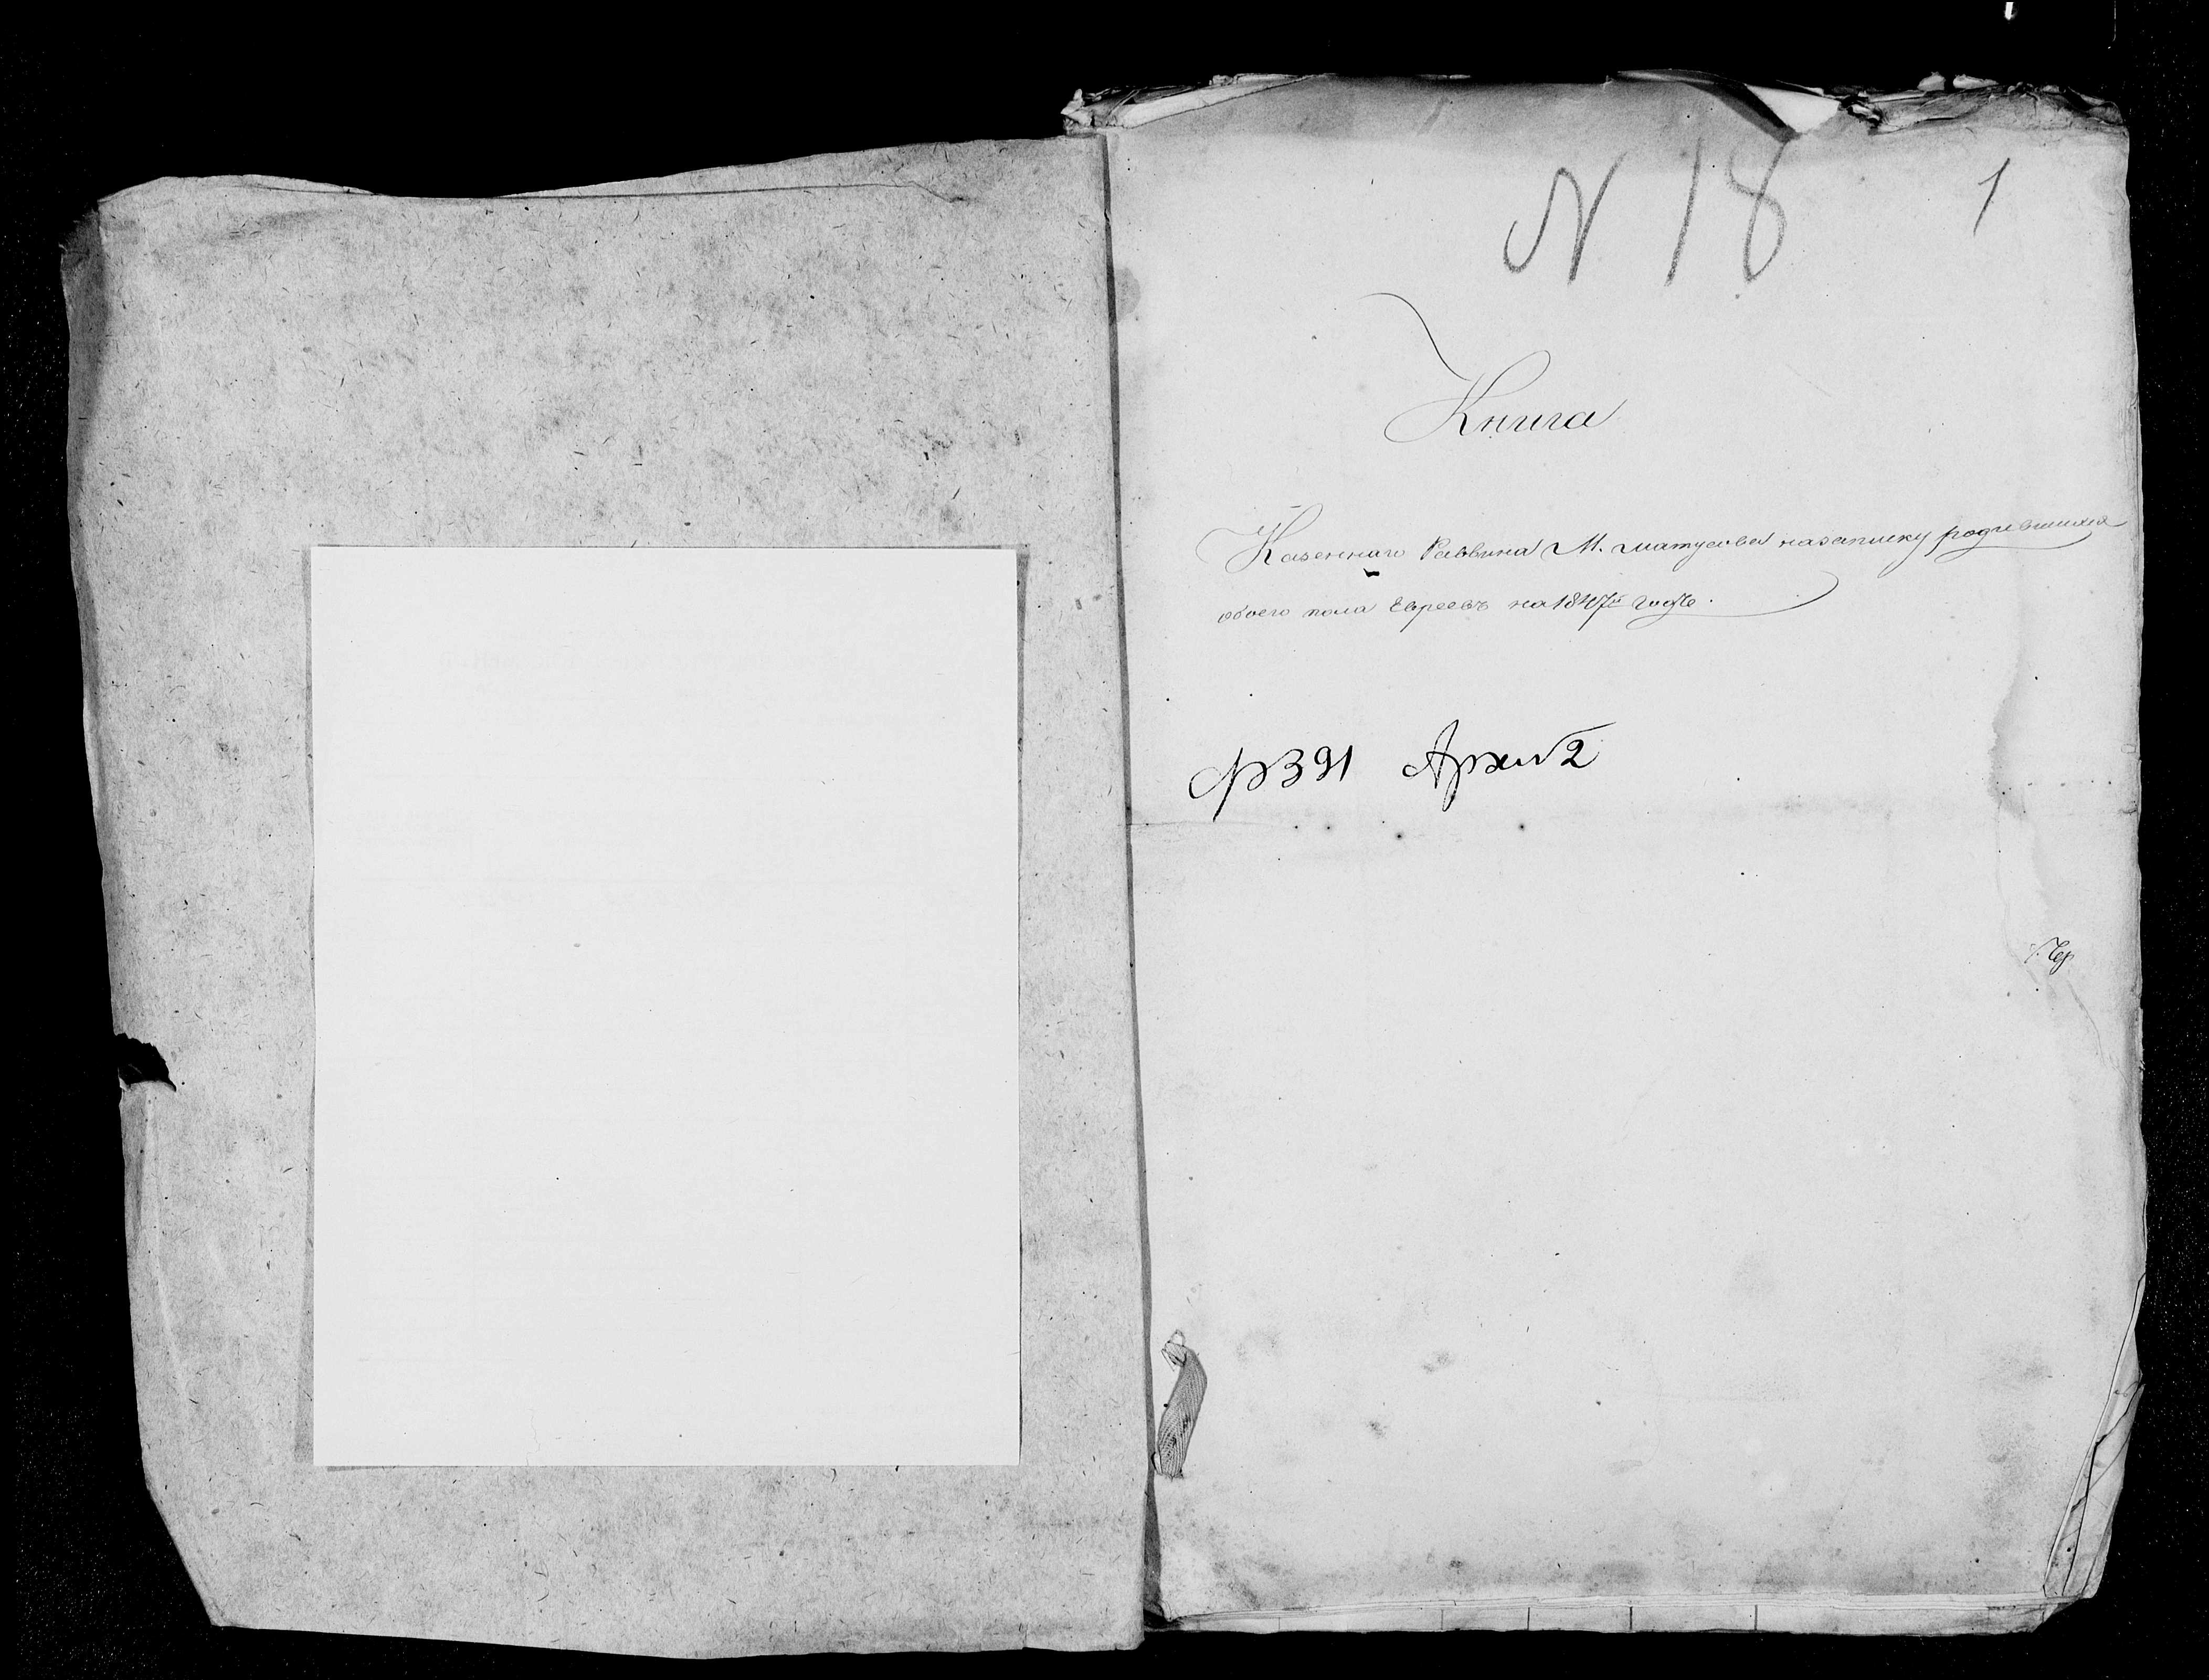 N 18
1
Книга
Казеннаго Раввина М. Матусова на записку родившихся
обоего пола Евреевъ на 1847й годъ.
ф 391 Архив 2